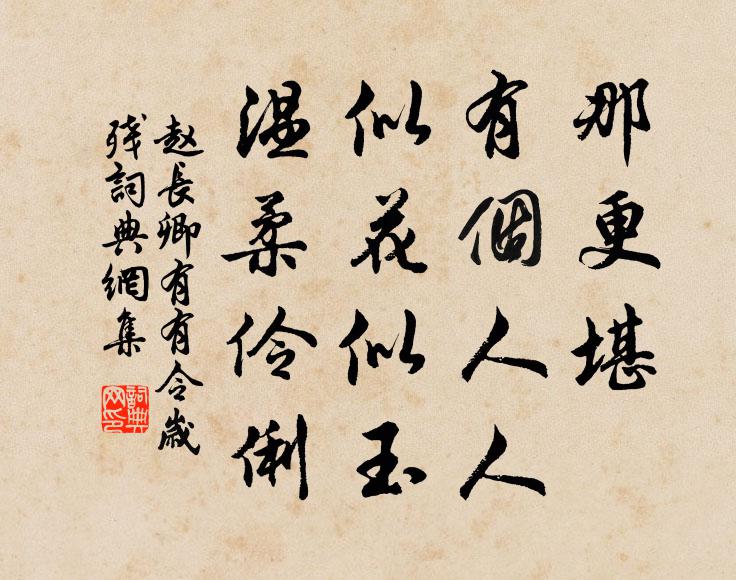 那更堪
有個人人
似花似玉
温柔伶俐
赵長卿有有令歲
残詞典網集
詞典网印